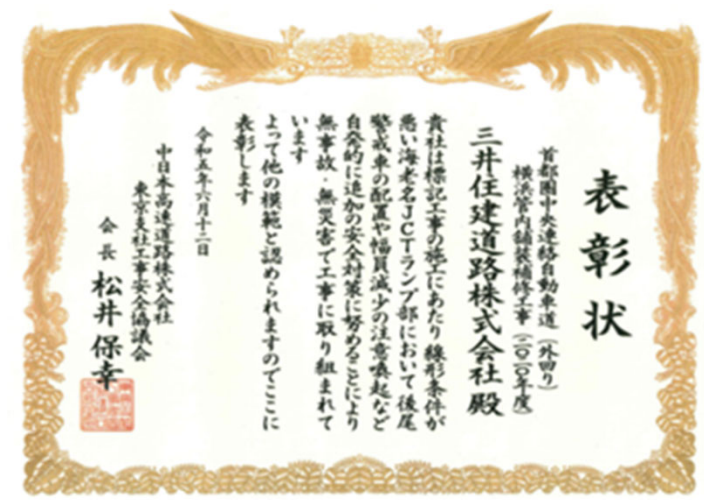 表彰状
首都圏中央連絡自動車道（外回り）
横浜管内舗装補修工事（二〇二〇年度）
三井住建道路株式会社 殿
貴社は標記工事の施工にあたり 線形条件が
悪い海老名JCTランプ部において 後尾
警戒車の配置や幅員減少の注意喚起など
自発的に追加の安全対策に努めることにより
無事故・無災害で工事に取り組まれて
います
よって他の模範と認められますのでここに
表彰します
令和五年六月十二日
中日本高速道路株式会社
東京支社工事安全協議会
会長 松井保幸